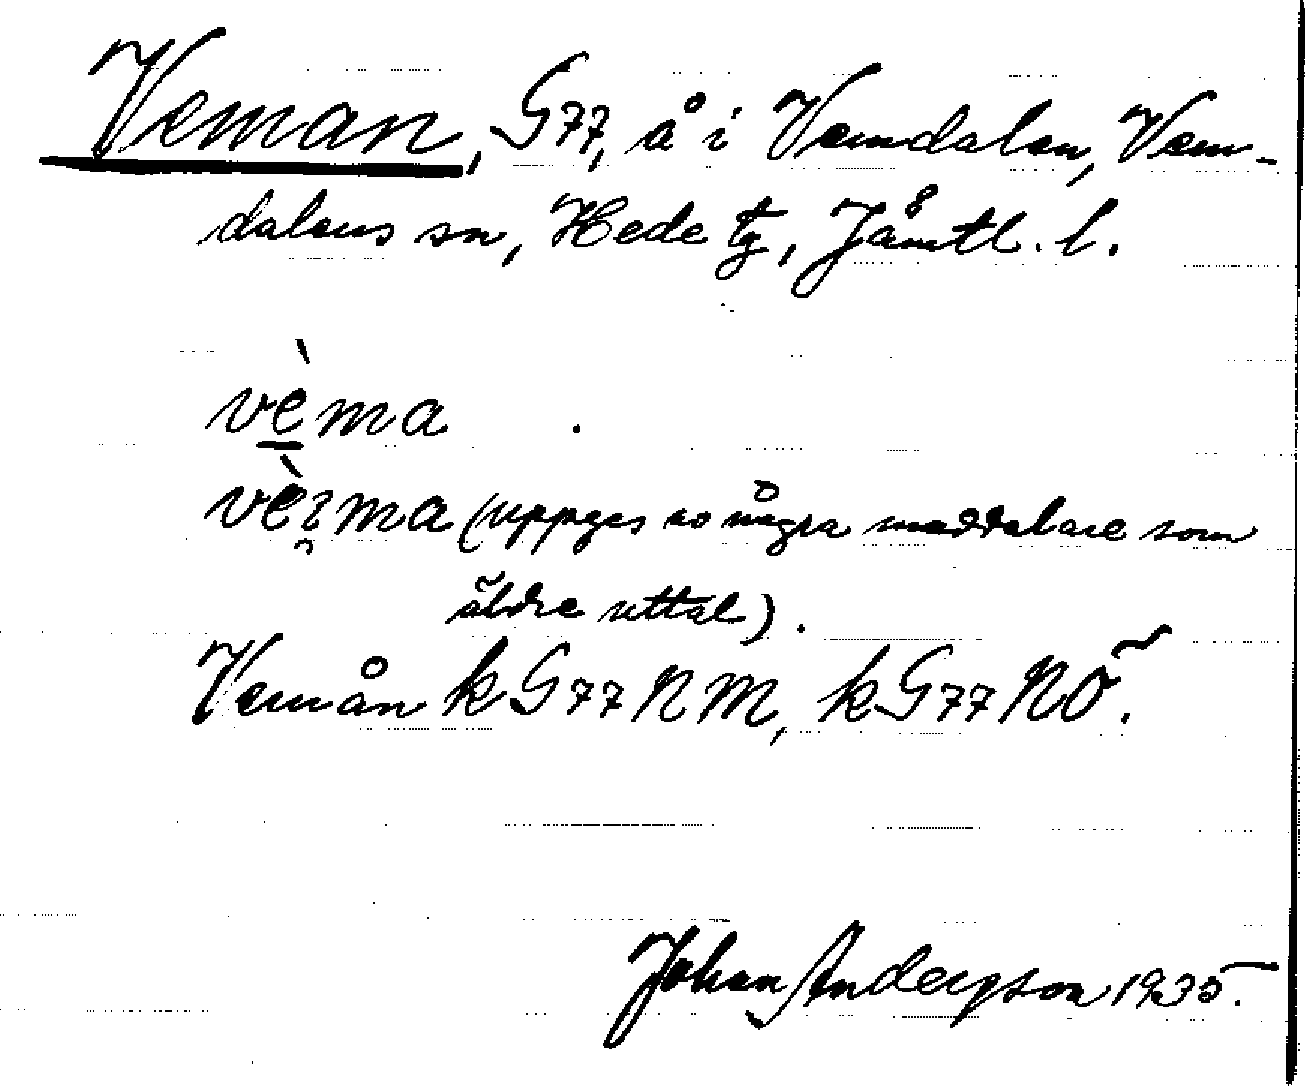 Veman, G77, å i Vemdalen, Vem-
dalens sn, Hede tg, Jämtl. l.
vèma
vèi̯ma (uppges av några meddelare som
äldre uttal).
Vemån kG77NM, kG77NÖ.
Johan Anderson 1935.